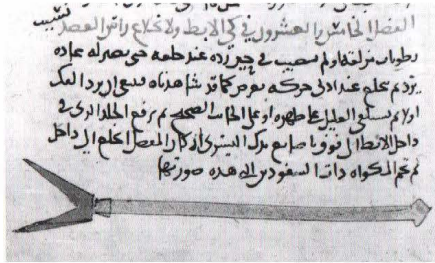 بسبب
الفصل الخامس والعشرون في كي الابط ولانخلاع راس العضد
رطوبات مزلقة ولم يثبت في حين رده عند خلعه حتى يصير له عاده
يرتد ثم ينخلع عند ادنى حركه تعرض كما قد شاهدناه فينبغي ان يرد الفك
اولا ثم يستلقي العليل على ظهره او على الجانب الصحيح ثم ترفع الجلد الذي في
داخل الابط الى فوق باصابع يدك اليسرى ان كان المفصل انخلع الى داخل
ثم تحمي المكواه ذات السفودين التي هذه صورتها